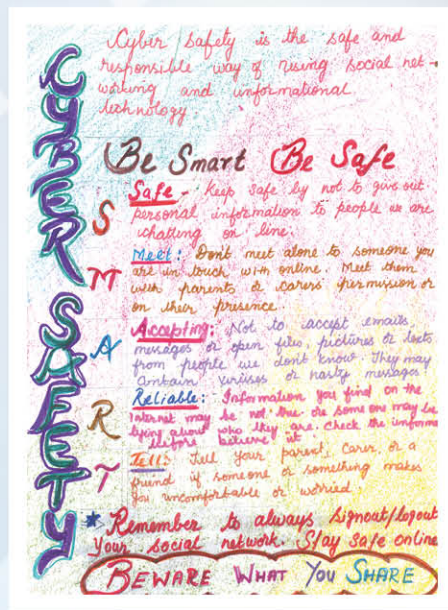 CYBER SAFETY
Cyber safety is the safe and
responsible way of using social net-
working and informational
technology
Be Smart Be Safe
S
Safe - Keep safe by not to give out
personal information to people we are
chatting on line.
M
Meet: Don't meet alone to someone you
are in touch with online. Meet them
with parents or carers permission or
on their presence.
A
Accepting: Not to accept emails,
messages or open files, pictures or texts
from people we don't know. They may
contain viruses or nasty messages
R
Reliable: Information you find on the
internet may be not true or someone may be
lying about who they are. Check the informa
before believe it
T
Tell: Tell your parent, carer, or a
friend if someone or something makes
you uncomfortable or worried
* Remember to always signout/logout
your social network. Stay safe online
BEWARE WHAT YOU SHARE